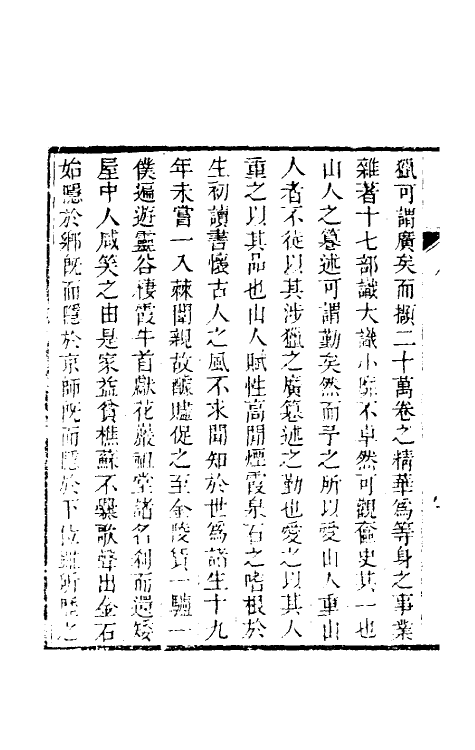 獵可謂廣矣而擷二十萬卷之精華爲等身之事業
雜著十七部識大識小靡不卓然可觀奩史其一也
山人之纂述可謂勤矣然而予之所以愛山人重山
人者不徒以其涉獵之廣纂述之勤也愛之以其人
重之以其品也山人賦性高閒煙霞泉石之嗜根於
生初讀書懷古人之風不求聞知於世爲諸生十九
年未嘗一入棘闈親故醵贐促之至金陵賃一驢一
僕遍遊靈谷棲霞牛首獻花巖祖堂諸名刹而還矮
屋中人咸笑之由是家益貧樵蘇不爨歌聲出金石
始隱於鄉旣而隱於京師旣而隱於下位雖所隱之